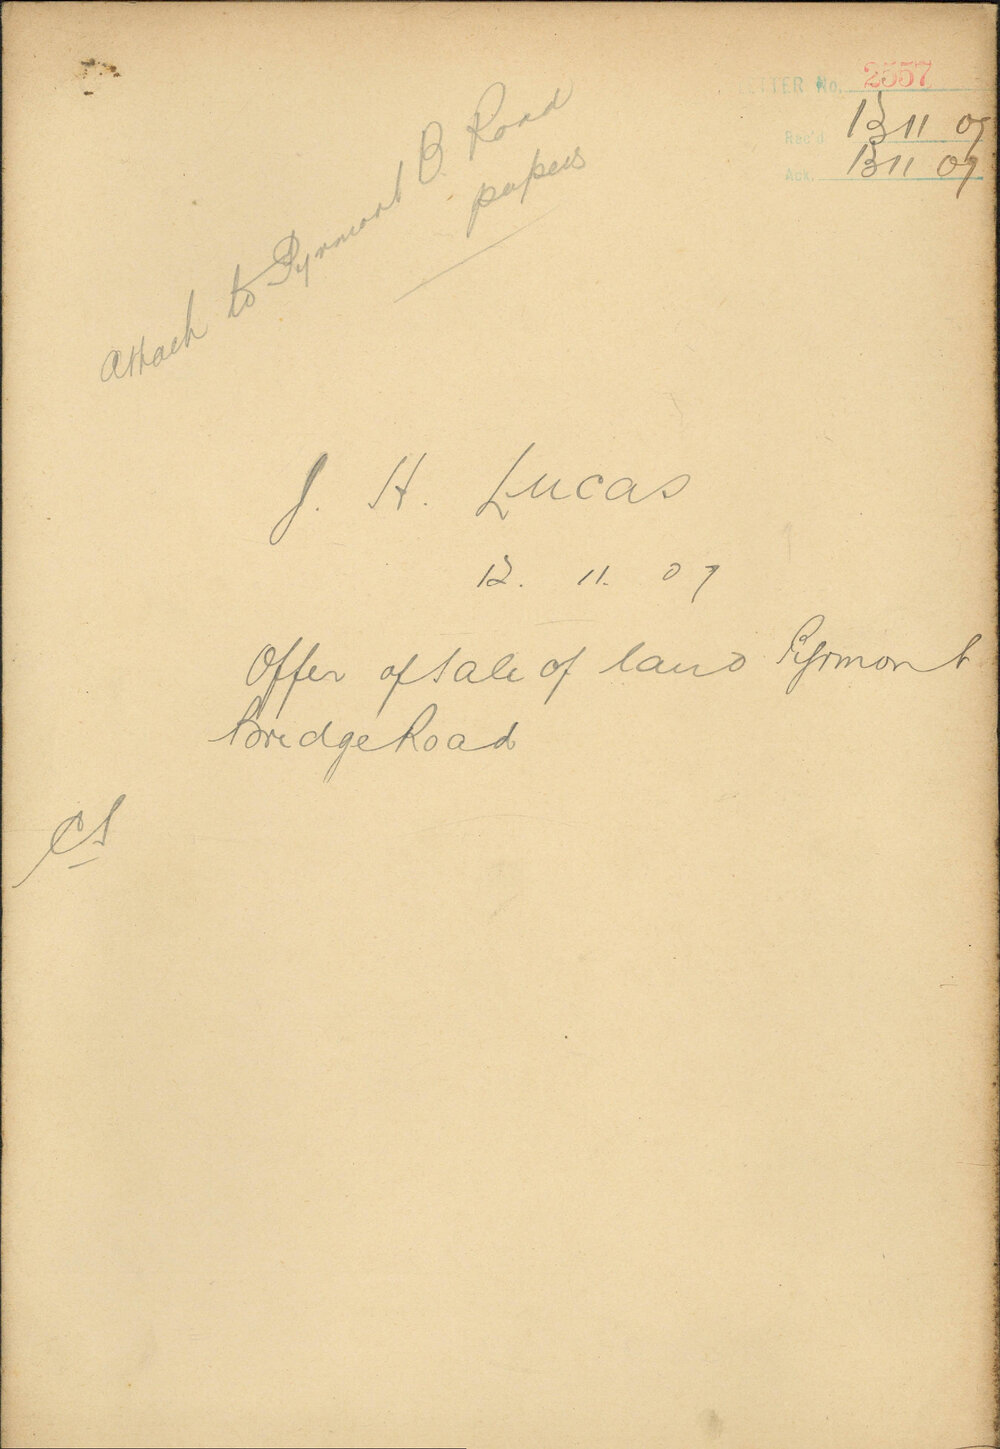 LETTER No. 2557
Rec'd 13 11 07
Ack. 13 11 07
Attach to Pyrmont B. Road
papers
J. H. Lucas
12. 11. 07
Offer of sale of land Pyrmont
Bridge Road
CS